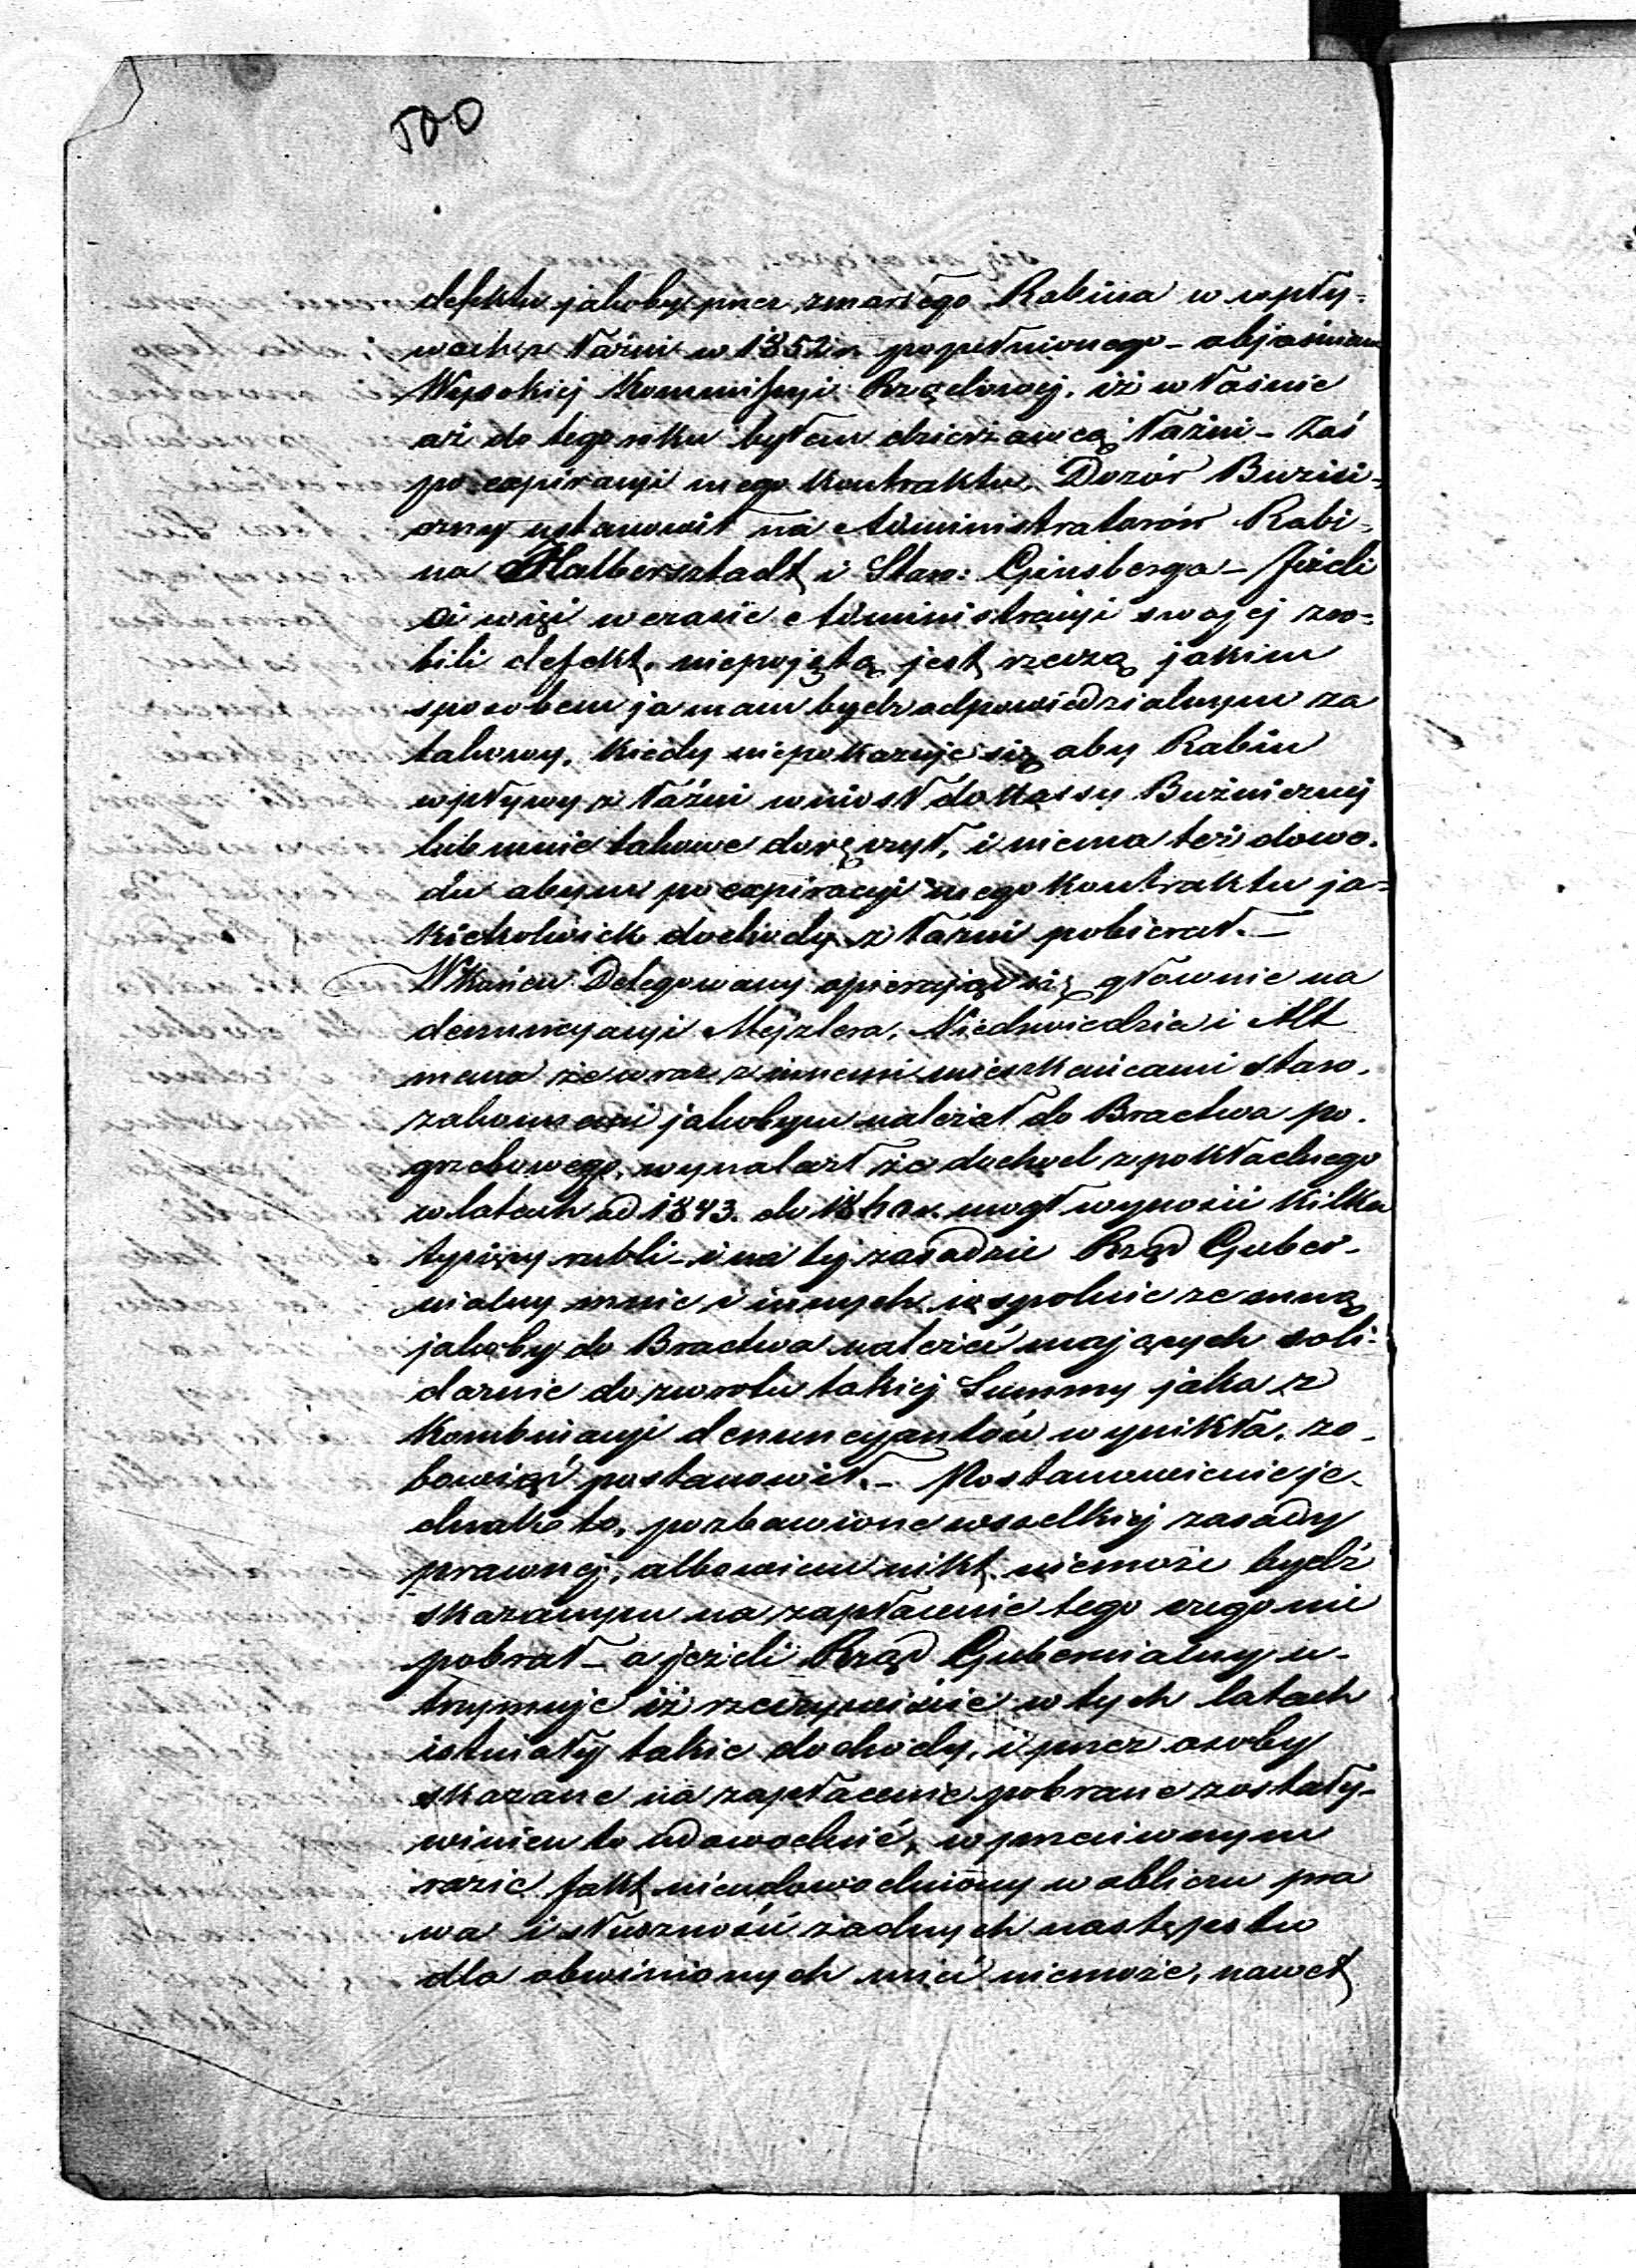 500
defektu jakoby przez zmarłego Rabina w wpły=
wach z łaźni w 1852 r. popełnionego – objaśniam
Wysokiej Kommissyi Rządowej, iż właśnie
aż do tego roku byłem dzierżawcą łaźni – zaś
po expiracyi mego kontraktu, Dozór Bużni=
czny ustanowił na Administratorów Rabi=
na Halbersztadt i Staro: Ginsberga – Jeżeli
ci więc w czasie Administracyi swojej zro=
bili defekt, niepojętą jest rzeczą jakim
sposobem ja mam bydź odpowiedzialnym za
takowy, kiedy niepokazuje się aby Rabin
wpływy z łaźni wniosł do Kassy Bużnicznej
lub mnie takowe doręczył, i niema też dowo=
du abym po expiracyi mego Kontraktu ja=
kiekolwiek dochody z łaźni pobierał. –
W Końcu Delegowany opierając się głównie na
denuncyacyi Mejzlera, Niedzwiedzia i Alt
mana że wraz z innemi mieszkańcami staro.
zakonnemi jakobym należał do Bractwa po.
grzebowego, wynalazł że dochod z pokładnego
w latach od 1843. do mogł wynosić kilka
tysięcy rubli – i na tej zasadzie Rząd Guber=
nialny mnie i innych wspolnie ze mną
jakoby do Bractwa należeć mających soli=
darnie do zwrotu takiej Summy jaka z
Kombinacyi denuncyantów wynikła, zo=
bowiązać postanowił. – Postanowienie je=
dnakże to, pozbawione wszelkiej zasady
prawnej, albowiem nikt niemoże bydź
skazanym na zapłacenie tego czego nie
pobrał – a jeżeli Rząd Gubernialny u=
trzymuje iż rzeczywiście w tych latach
istniały takie dochody, i przez osoby
skazane na zapłacenie pobrane zostały –
winien to udowodnić, w przeciwnym
razie fakt nieudowodniony w obliczu pra
wa i słuszności żadnych następstw
dla obwinionych mieć niemoże, nawet